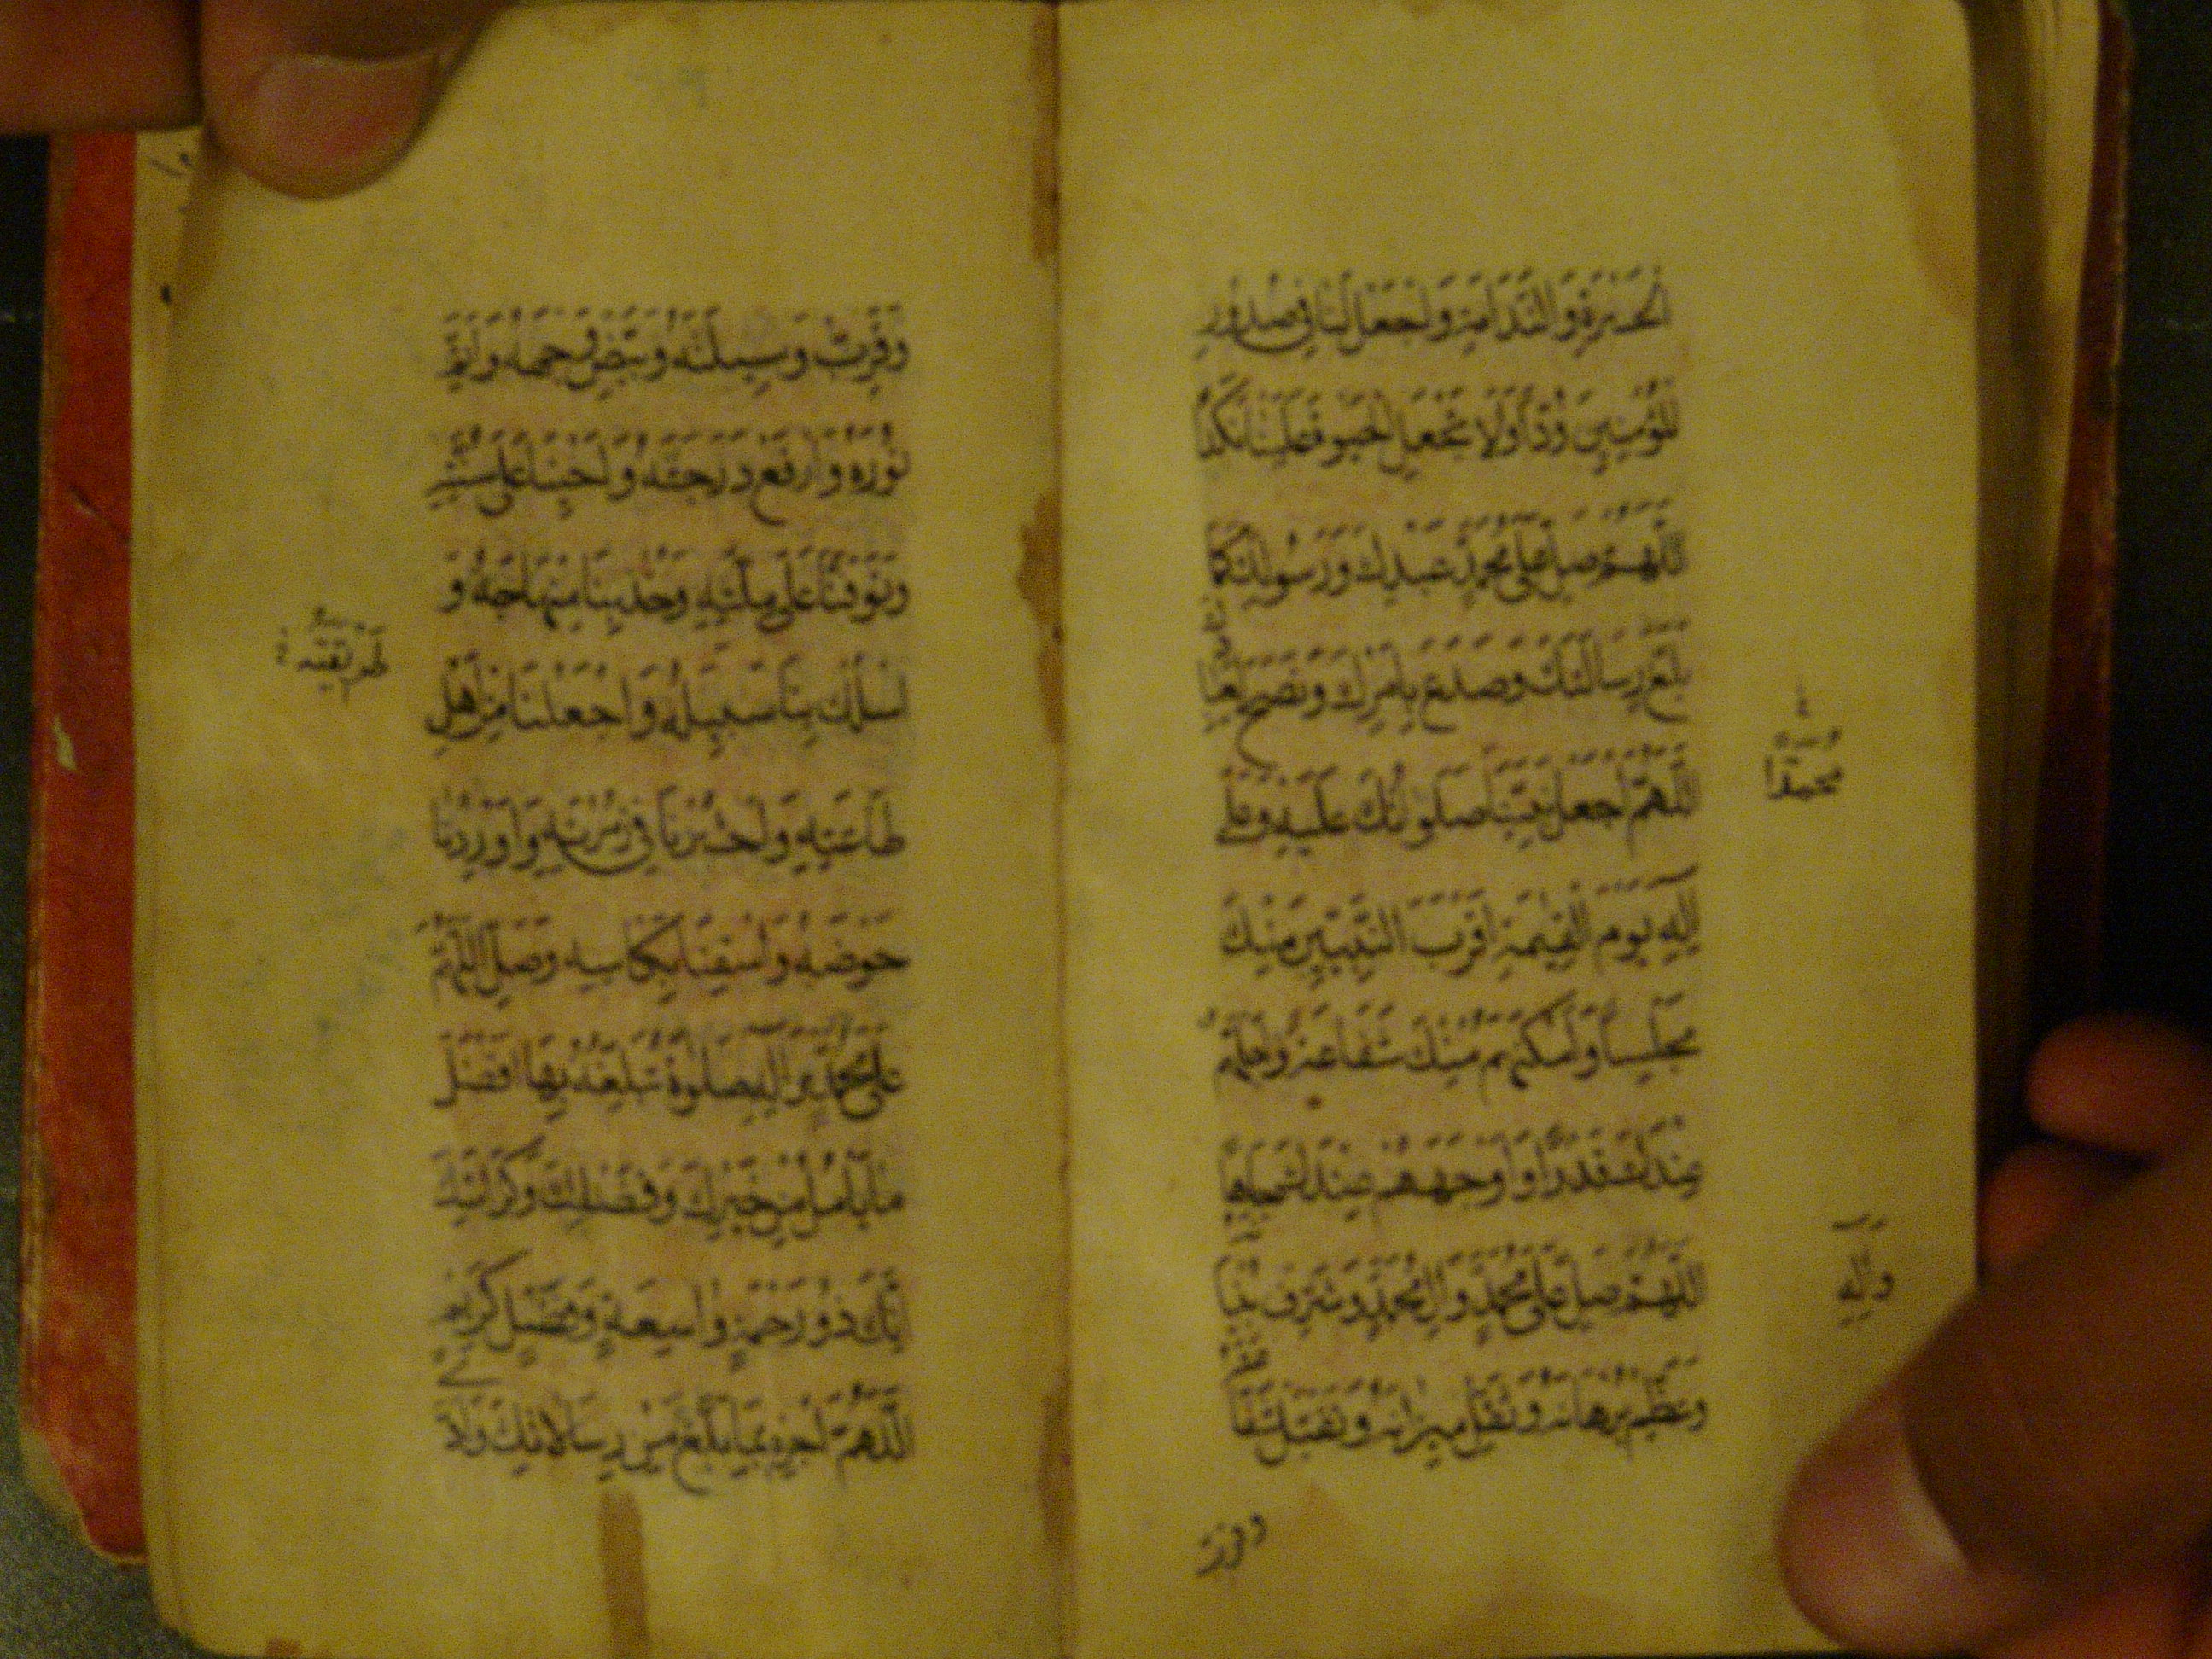 الْحَسْرَةِ وَالنَّدَامَةِ وَاجْعَلْ لَنَا فِي صُدُورِ
الْمُؤْمِنِينَ وُدًّا وَلَا تَجْعَلِ الْحَيٰوةَ عَلَيْنَا نَكَدًا
اَللّٰهُمَّ صَلِّ عَلَى مُحَمَّدٍ عَبْدِكَ وَرَسُولِكَ كَمَا
بَلَّغَ رِسَالَتَكَ وَصَدَعَ بِاَمْرِكَ وَنَصَحَ لِعِبَا
دِكَ
اَللّٰهُمَّ اجْعَلْ نَبِيَّنَا صَلَوَاتُكَ عَلَيْهِ وَعَلَى
اٰلِهِ يَوْمَ الْقِيٰمَةِ اَقْرَبَ النَّبِيِّينَ مِنْكَ
مَجْلِسًا وَاَمْكَنَهُمْ مِنْكَ شَفَاعَةً وَاَجَلَّهُمْ
عِنْدَكَ قَدْرًا وَاَوْجَهَهُمْ عِنْدَكَ جَاهًا
اَللّٰهُمَّ صَلِّ عَلَى مُحَمَّدٍ وَاٰلِ مُحَمَّدٍ وَشَرِّفْ بُنْيَا
نَهُ
وَعَظِّمْ بُرْهَانَهُ وَثَقِّلْ مِيزَانَهُ وَتَقَبَّلْ شَفَا
عَتَهُ
مُحَمَّدًا
وَاٰلِهِ
وقرب
وَقَرِّبْ وَسِيلَتَهُ وَبَيِّضْ وَجْهَهُ وَاَتِمَّ
نُورَهُ وَارْفَعْ دَرَجَتَهُ وَاَحْيِنَا عَلَى سُنَّتِهِ
وَتَوَفَّنَا عَلَى مِلَّتِهِ وَخُذْ بِنَا مِنْهَاجَهُ وَ
طَرِيقَتَهُ
اسْلُكْ بِنَا سَبِيلَهُ وَاجْعَلْنَا مِنْ اَهْلِ
طَاعَتِهِ وَاحْشُرْنَا فِي زُمْرَتِهِ وَاَوْرِدْنَا
حَوْضَهُ وَاسْقِنَا بِكَاْسِهِ وَصَلِّ اللّٰهُمَّ
عَلَى مُحَمَّدٍ وَاٰلِهِ صَلٰوةً تُبَلِّغُهُ بِهَا اَفْضَلَ
مَا يَاْمُلُ مِنْ خَيْرِكَ وَفَضْلِكَ وَكَرَامَتِكَ
اِنَّكَ ذُو رَحْمَةٍ وَاسِعَةٍ وَفَضْلٍ كَرِيمٍ
اَللّٰهُمَّ اجْزِهِ بِمَا بَلَّغَ مِنْ رِسَالَاتِكَ وَاَدّٰى